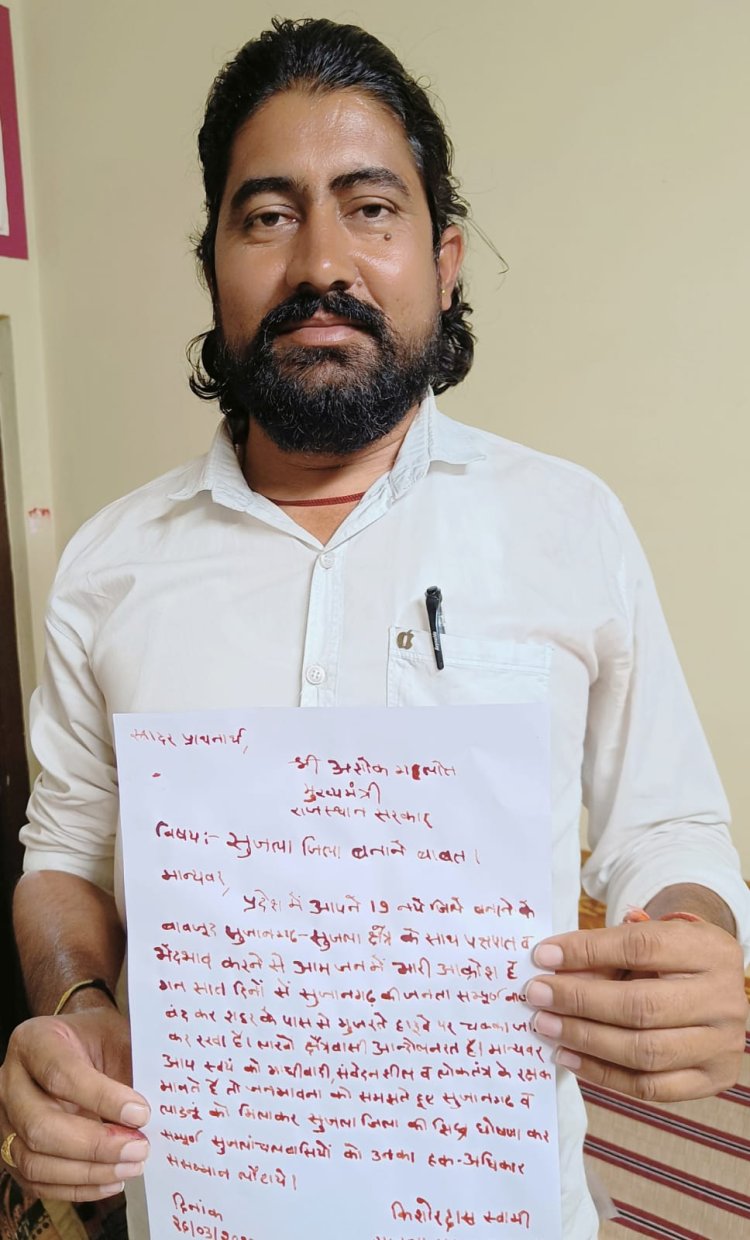 सादर प्राथनार्थ,
श्री अशोक गहलोत
मुख्यमंत्री
राजस्थान सरकार
विषय:- सुजला जिला बनाने बाबत।
मान्यवर,
प्रदेश में आपने 19 नये जिले बनाने के
बावजूद सुजानगढ-सुजला क्षैत्र के साथ पक्षपात व
भेदभाव करने से आम जन में भारी आक्रोश है
गत सात दिनों से सुजानगढ की जनता सम्पूर्ण
बंद कर शहर के पास से गुजरते हाइवे पर चक्का
कर रखा है। लाखों क्षैत्रवासी आन्दोलनरत है। मान्यवर
आप स्वयं को गांधीवादी, संवेदनशील व लोकतंत्र के रक्षक
मानते है तो जनभावना को समझते हुए सुजानगढ व
लाडनू को मिलाकर सुजला जिला की घोषणा कर
सम्पूर्ण सुजलांचलवासियों को उनका हक-अधिकार
ससम्मान लौटाये।
दिनांक
किशोरदास स्वामी
26/03/